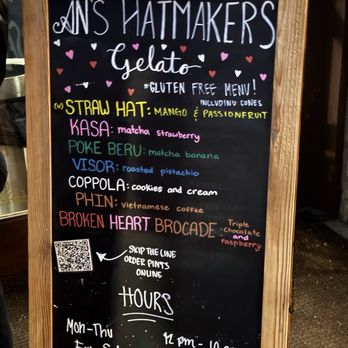 AN'S HATMAKERS
Gelato
*GLUTEN FREE MENU!
INCLUDING CONES
(v) STRAW HAT: MANGO & PASSIONFRUIT
KASA: matcha strawberry
POKE BERU: matcha banana
VISOR: roasted pistachio
COPPOLA: cookies and cream
PHIN: vietnamese coffee
BROKEN HEART BROCADE: Triple chocolate and raspberry
SKIP THE LINE
ORDER PINTS
ONLINE
HOURS
Mon-Thu 12 pm - 10